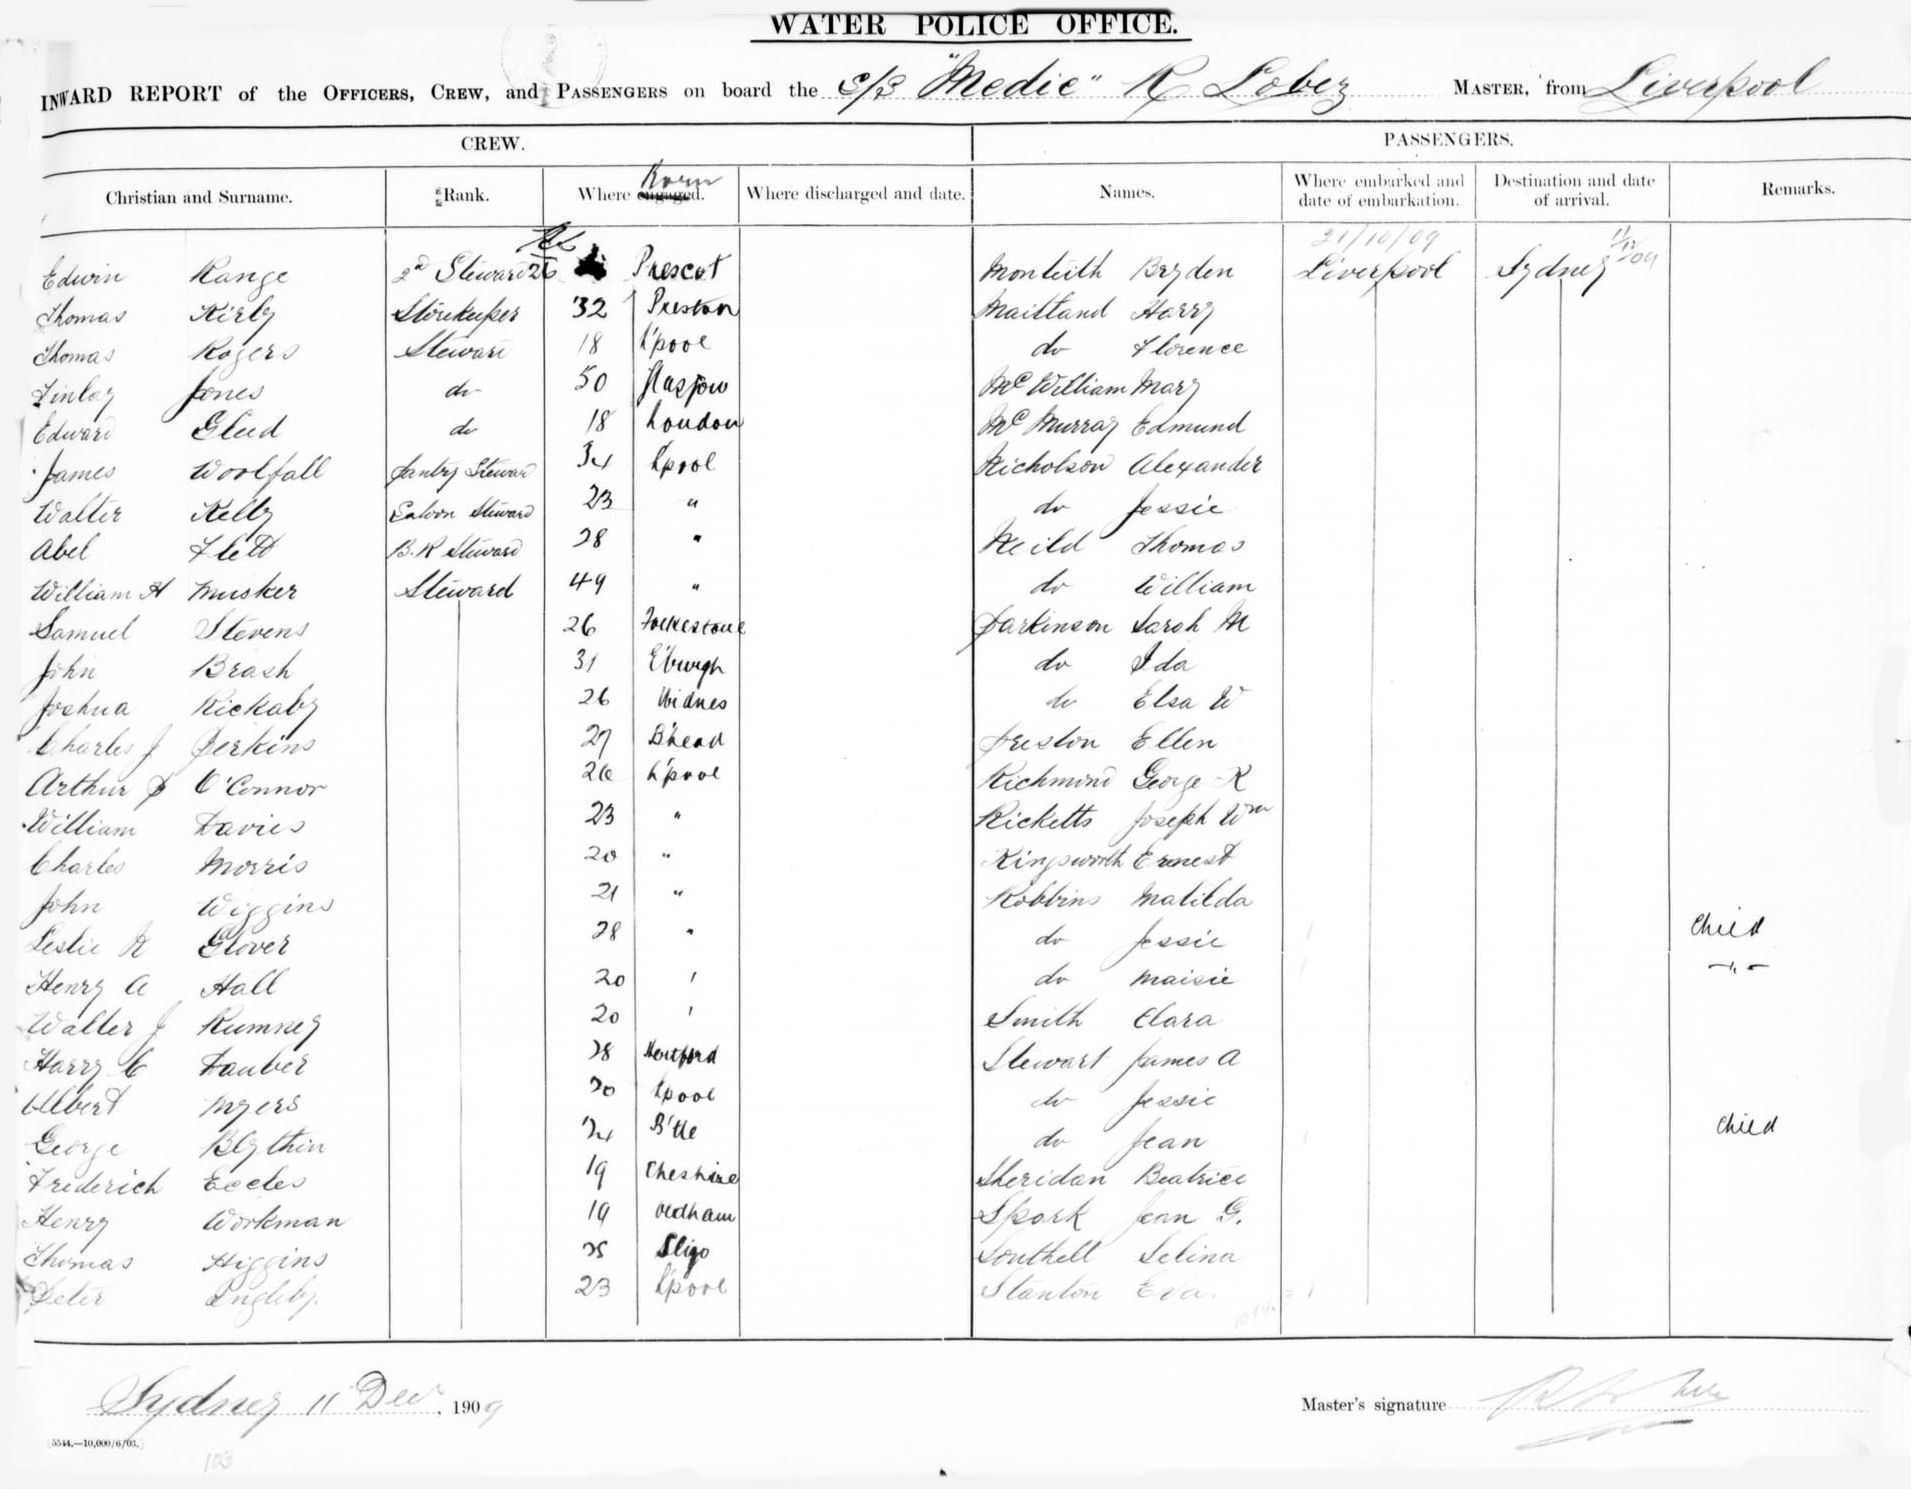 WATER POLICE OFFICE.
INWARD REPORT of the OFFICERS, CREW, and PASSENGERS on board the S/S "Medic" R Lobez MASTER, from Liverpool
CREW. PASSENGERS.
Christian and Surname. Rank. Where engaged. Born Where discharged and date. Names. Where embarked and date of embarkation. Destination and date of arrival. Remarks.
21/10/09 11/12/09
Edwin Range 2nd Steward 26 Prescot Monteith Bryden Liverpool Sydney
Thomas Kirby Storekeeper 32 Preston Maitland Harry
Thomas Rogers Steward 18 L'pool do Florence
Finlay Jones do 50 Glasgow McWilliam Mary
Edward Gleed do 18 London McMurray Edmund
James Woolfall Pantry Steward 34 L'pool Nicholson Alexander
Walter Kelly Saloon Steward 23 " do Jessie
Abel Flett B.R Steward 28 " Neild Thomas
William H Musker Steward 49 " do William
Samuel Stevens 26 Folkestone Parkinson Sarah M
John Brash 31 E'burgh do Ida
Joshua Rickaby 26 Widnes do Elsa W
Charles J Perkins 27 B'head Preston Ellen
Arthur P O'Connor 26 L'pool Richmond George R
William Davies 23 " Ricketts Joseph Wm
Charles Morris 20 " Kingsworth Ernest
John Wiggins 21 " Robbins Matilda
Leslie R Glover 28 " do Jessie Child
Henry A Hall 20 " do Maisie "
Walter J Rumney 20 " Smith Clara
Harry C Dauber 28 Hertford Stewart James A
Albert Myers 20 L'pool do Jessie
George Blythin 24 B'tle do Jean Child
Frederich Eccles 19 Cheshire Sheridan Beatrice
Henry Workman 19 Oldham Spork Jean G.
Thomas Higgins 25 Sligo Southell Selina
Peter Ingleby. 23 L'pool Stanton Eva.
Sydney 11 Decr, 1909 Master's signature
[5544.—10,000/6/03.]
123